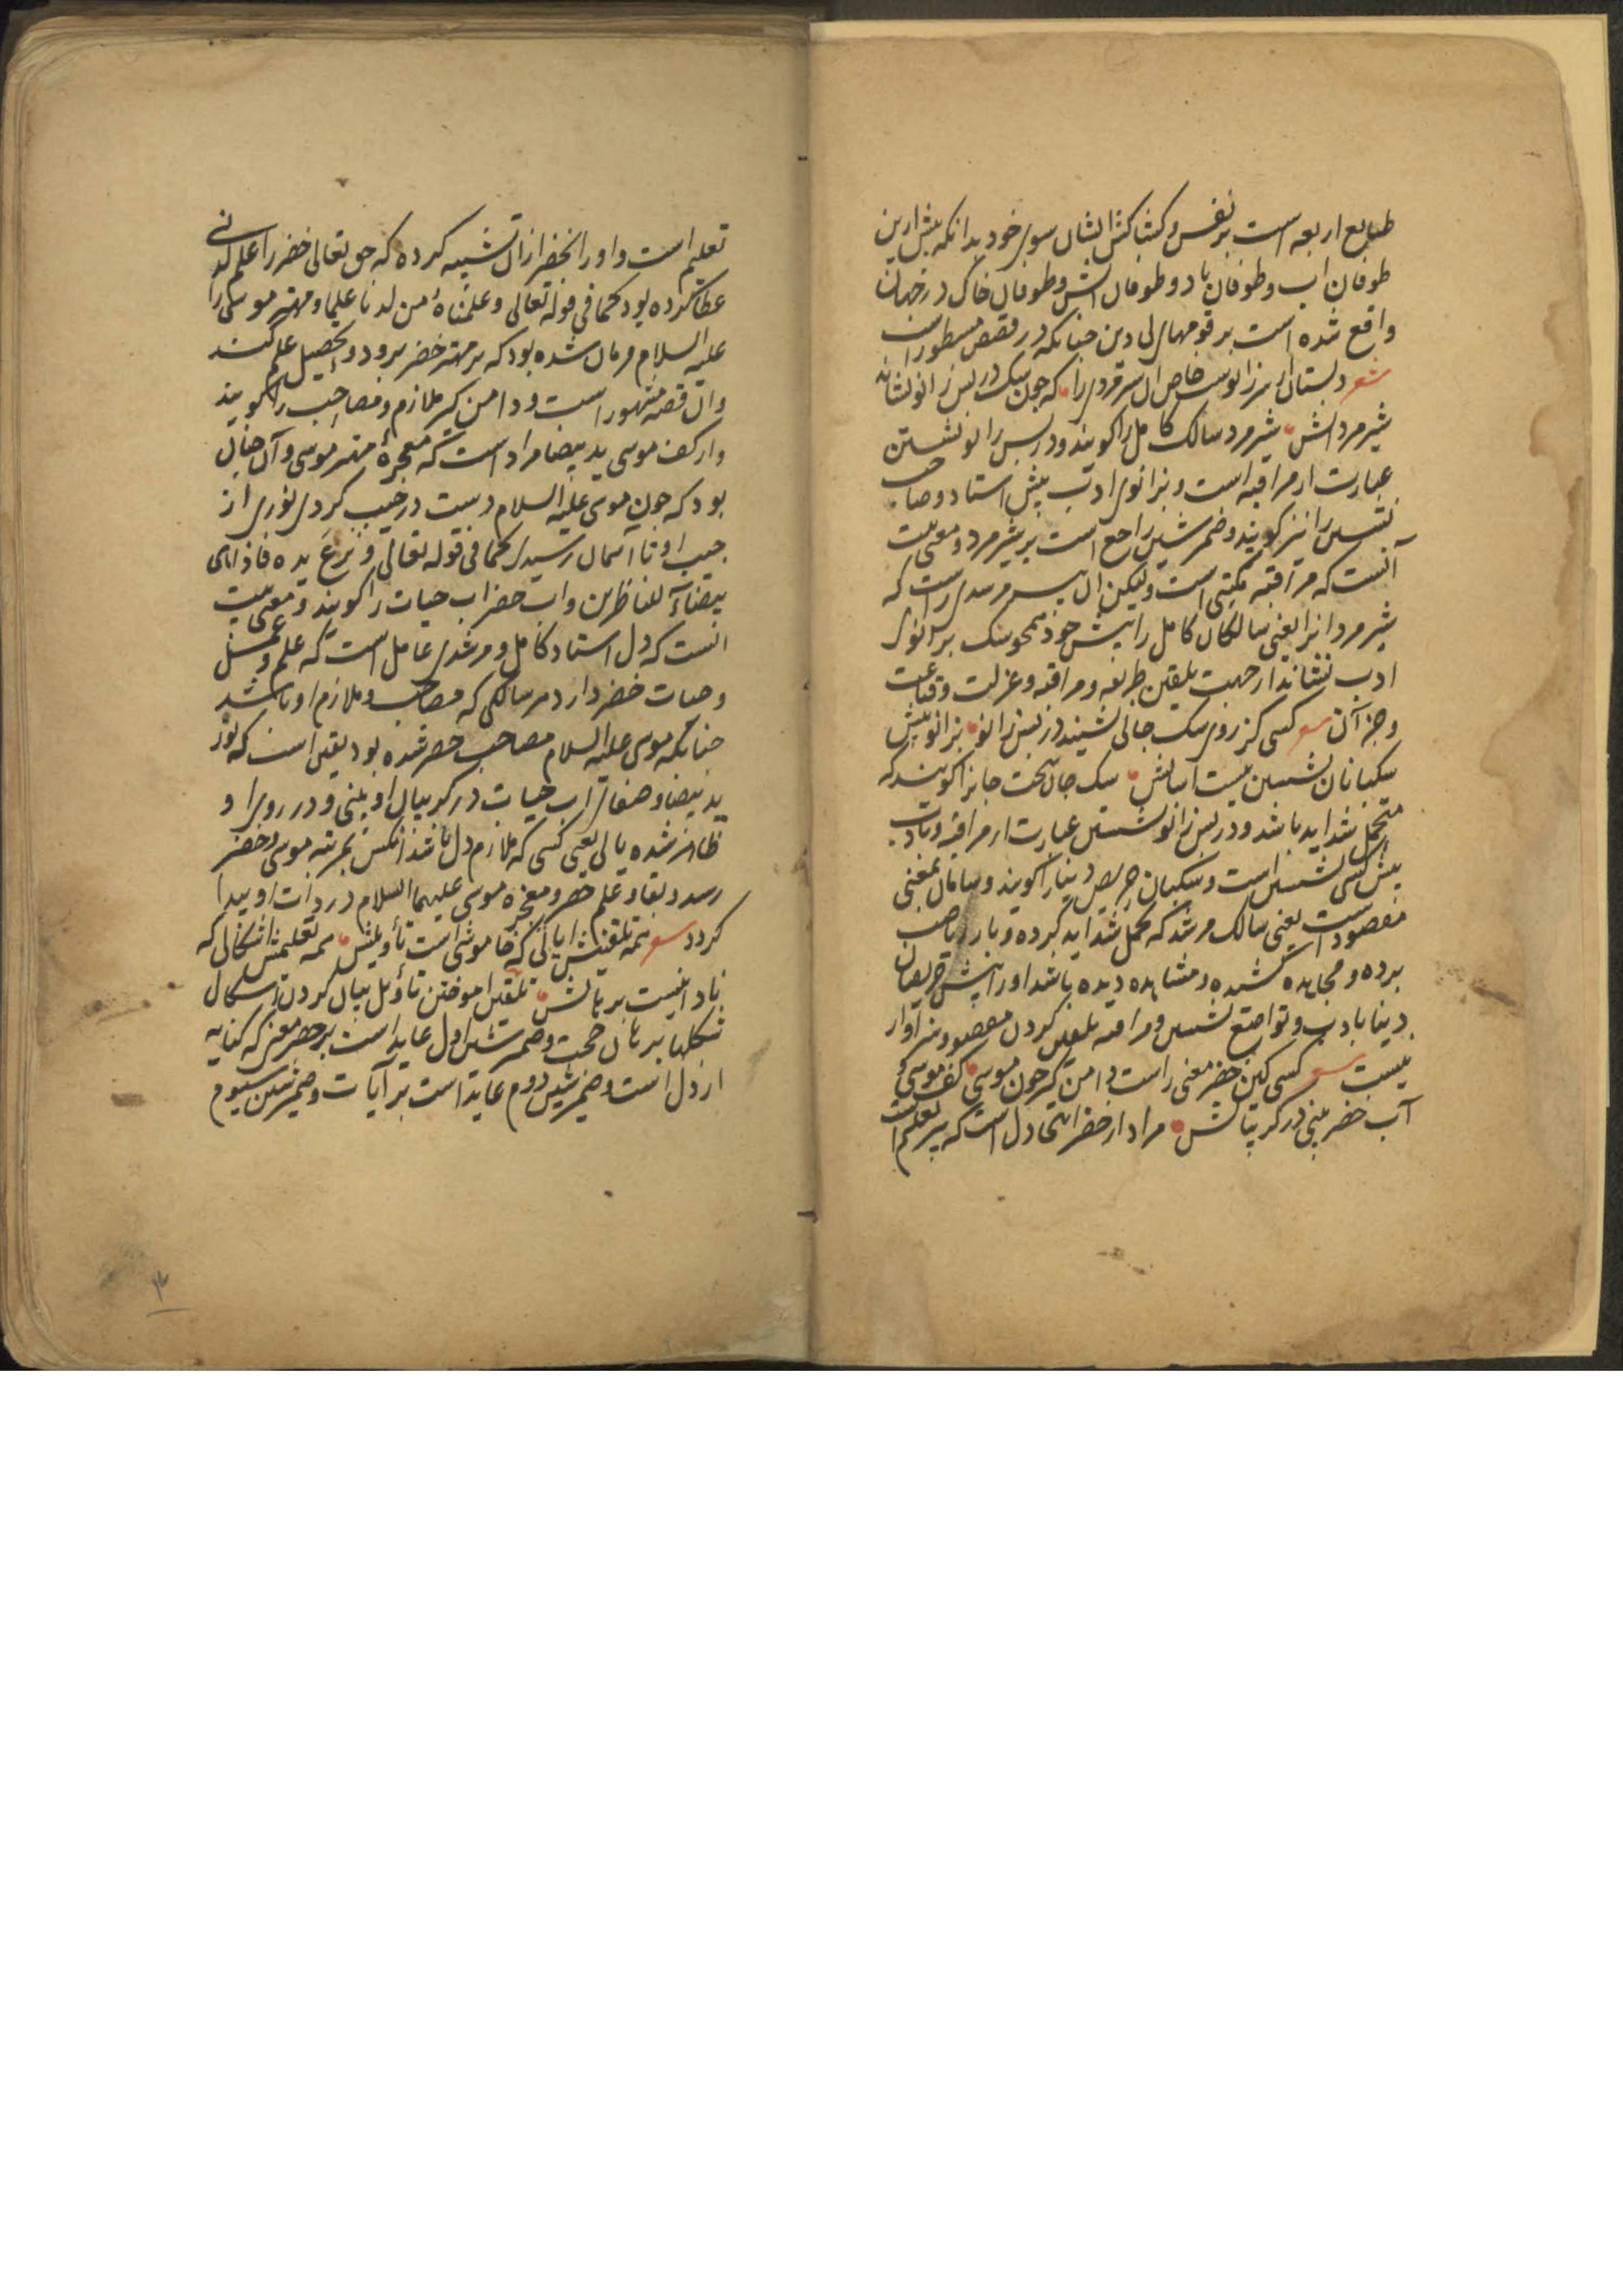 طبایع اربعه است بر نفس و کشاکش ایشان سوی خود بدانکه پیش ازین
طوفان اب و طوفان باد و طوفان اتش و طوفان خاک در جهان
واقع شده است بر قومهای بی دین چنانکه در قصص مسطور است
شعر دبستان از سر زانوست خاص ان شیر مردی را که چون سک در پس زانو نشاند
شیر مردانش شیر مرد سالک کامل را کویند و در پس زانو نشستن
عبارت از مراقبه است و بزانوی ادب پیش استاد و صاحب
نشستن را نیز کویند و ضمیر شین راجع است بر شیر مرد و معنی بیت
آنست که مراقبه مکتبی است ولیکن ان پیر و مرشدی راست که
شیر مردانرا یعنی سالکان کامل را پیش خود همچو سک بر زانوی
ادب نشاند از جهت تلقین طریقه و مراقبه و عزلت و قناعت
و جز آن شعر کسی کز روی سک جانی نشیند در پس زانو بزانو پیش
سکبانان نشستن نیست اسانش سک جان سخت جانرا کویند که
متحمل شداید باشد و در پس زانو نشستن عبارت از مراقبه و بادب
پیش کسی نشستن است و سکبان حریص دینارا کویند و سامان بمعنی
مقصود است یعنی سالک مرشد که تحمل شداید کرده و بار ریاضت
برده و مجاهده کشیده و مشاهده دیده باشد اورا پیش حریصان
دینا بادب و تواضع نشستن و مراقبه تلقین کردن مقصود و سزاوار
نیست شعر کسی کین خضر معنی راست دامن کیر چون موسی کف موسی و
آب خضر بینی در کریبانش مراد از خضر اینجا دل است که پیر تعلیم است
تعلیم است و اورا بخضر از ان تشبیه کرده که حق تعالی خضر را علم لدنی
عطا کرده بود کما فی قوله تعالی وعلمناه من لدنا علما و مهتر موسی را
علیه السلام فرمان شده بود که بر مهتر خضر برود و تحصیل علم کند
و ان قصه مشهور است و دامن کیر ملازم و مصاحب را کویند
و از کف موسی ید بیضا مراد است که معجزهٔ مهتر موسی و آن چنان
بود که چون موسی علیه السلام دست در جیب کردی نوری از
جیب او تا آسمان رسیدی کما فی قوله تعالی و نزع یده فاذا هی
بیضاء للناظرین و اب خضر اب حیات را کویند و معنی بیت
انست که دل استاد کامل و مرشدی عامل است که علم و عمل
و حیات خضر دارد هر سالکی که مصاحب و ملازم او باشد
چنانکه موسی علیه السلام مصاحب خضر شده بود یقین است که نور
ید بیضا و صفای اب حیات در کریبان او بینی و در روی او
ظاهر شده یابی یعنی کسی که ملازم دل باشد انکس بمرتبه موسی و خضر
رسد و بقا و علم خضر و معجزه موسی علیهما السلام در ذات او پیدا
کردد شعر همه تلقینش ایاتی که خاموشی است تأویلش همه تعلیمش اشکالی که
نادانیست برهانش تلقین اموختن تأویل بیان کردن اشکال
شکلها برهان حجت و ضمیر شین اول عاید است بر خضر معنی که کنایه
از دل است و ضمیر شین دوم عاید است بر آیات و ضمیر شین سیوم